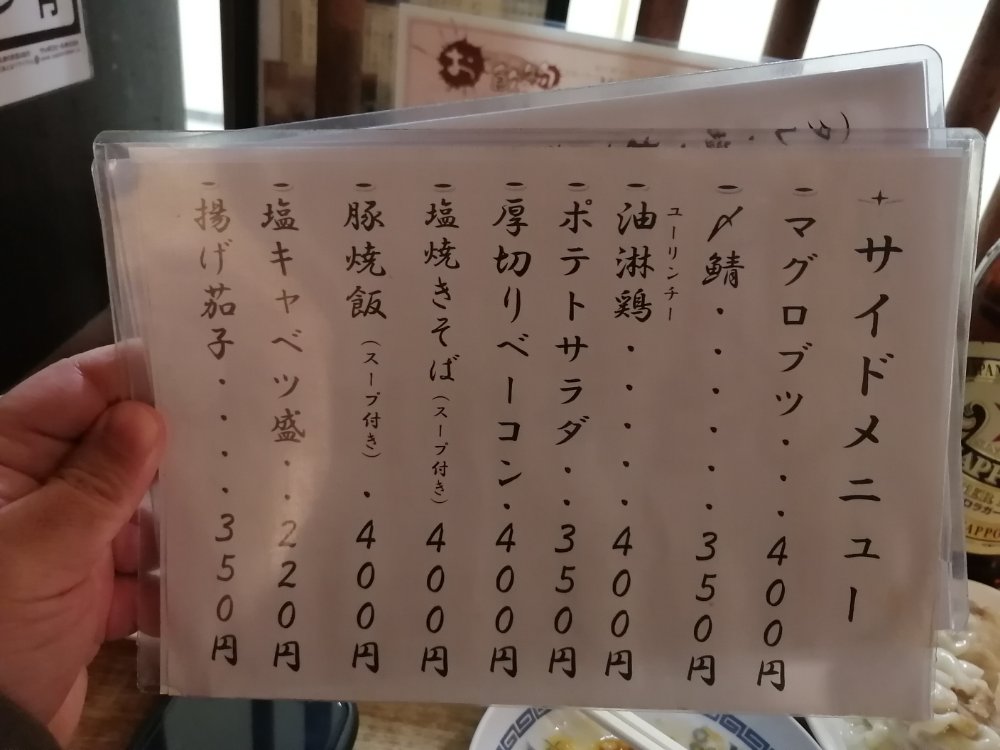 サイドメニュー
マグロブツ・・・400円
〆鯖・・・・・350円
ユーリンチー
油淋鶏・・・・・400円
ポテトサラダ・・350円
厚切りベーコン・400円
塩焼きそば(スープ付き)400円
豚焼飯(スープ付き)・400円
塩キャベツ盛・・220円
揚げ茄子・・・・350円
円